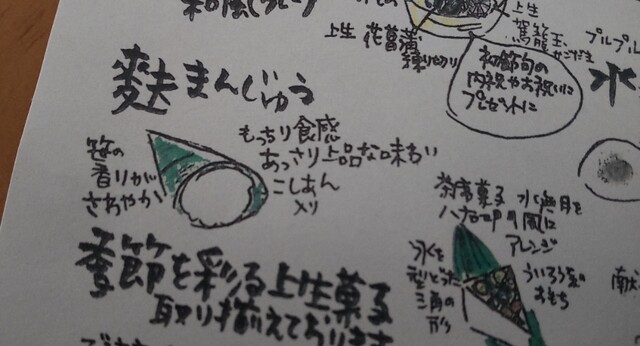 上生
花菖蒲
練りきり
上生
駕籠玉
かごだま
初節句の
内祝やお祝いに
プレゼントに
プルプル
水
麩まんじゅう
笹の
香りが
さわやか
もっちり食感
あっさり上品な味わい
こしあん
入り
茶席菓子 水無月を
風に
アレンジ
氷を
型どった
三角の
形
ういろう型
おもち
季節を彩る上生菓子
取り揃えております